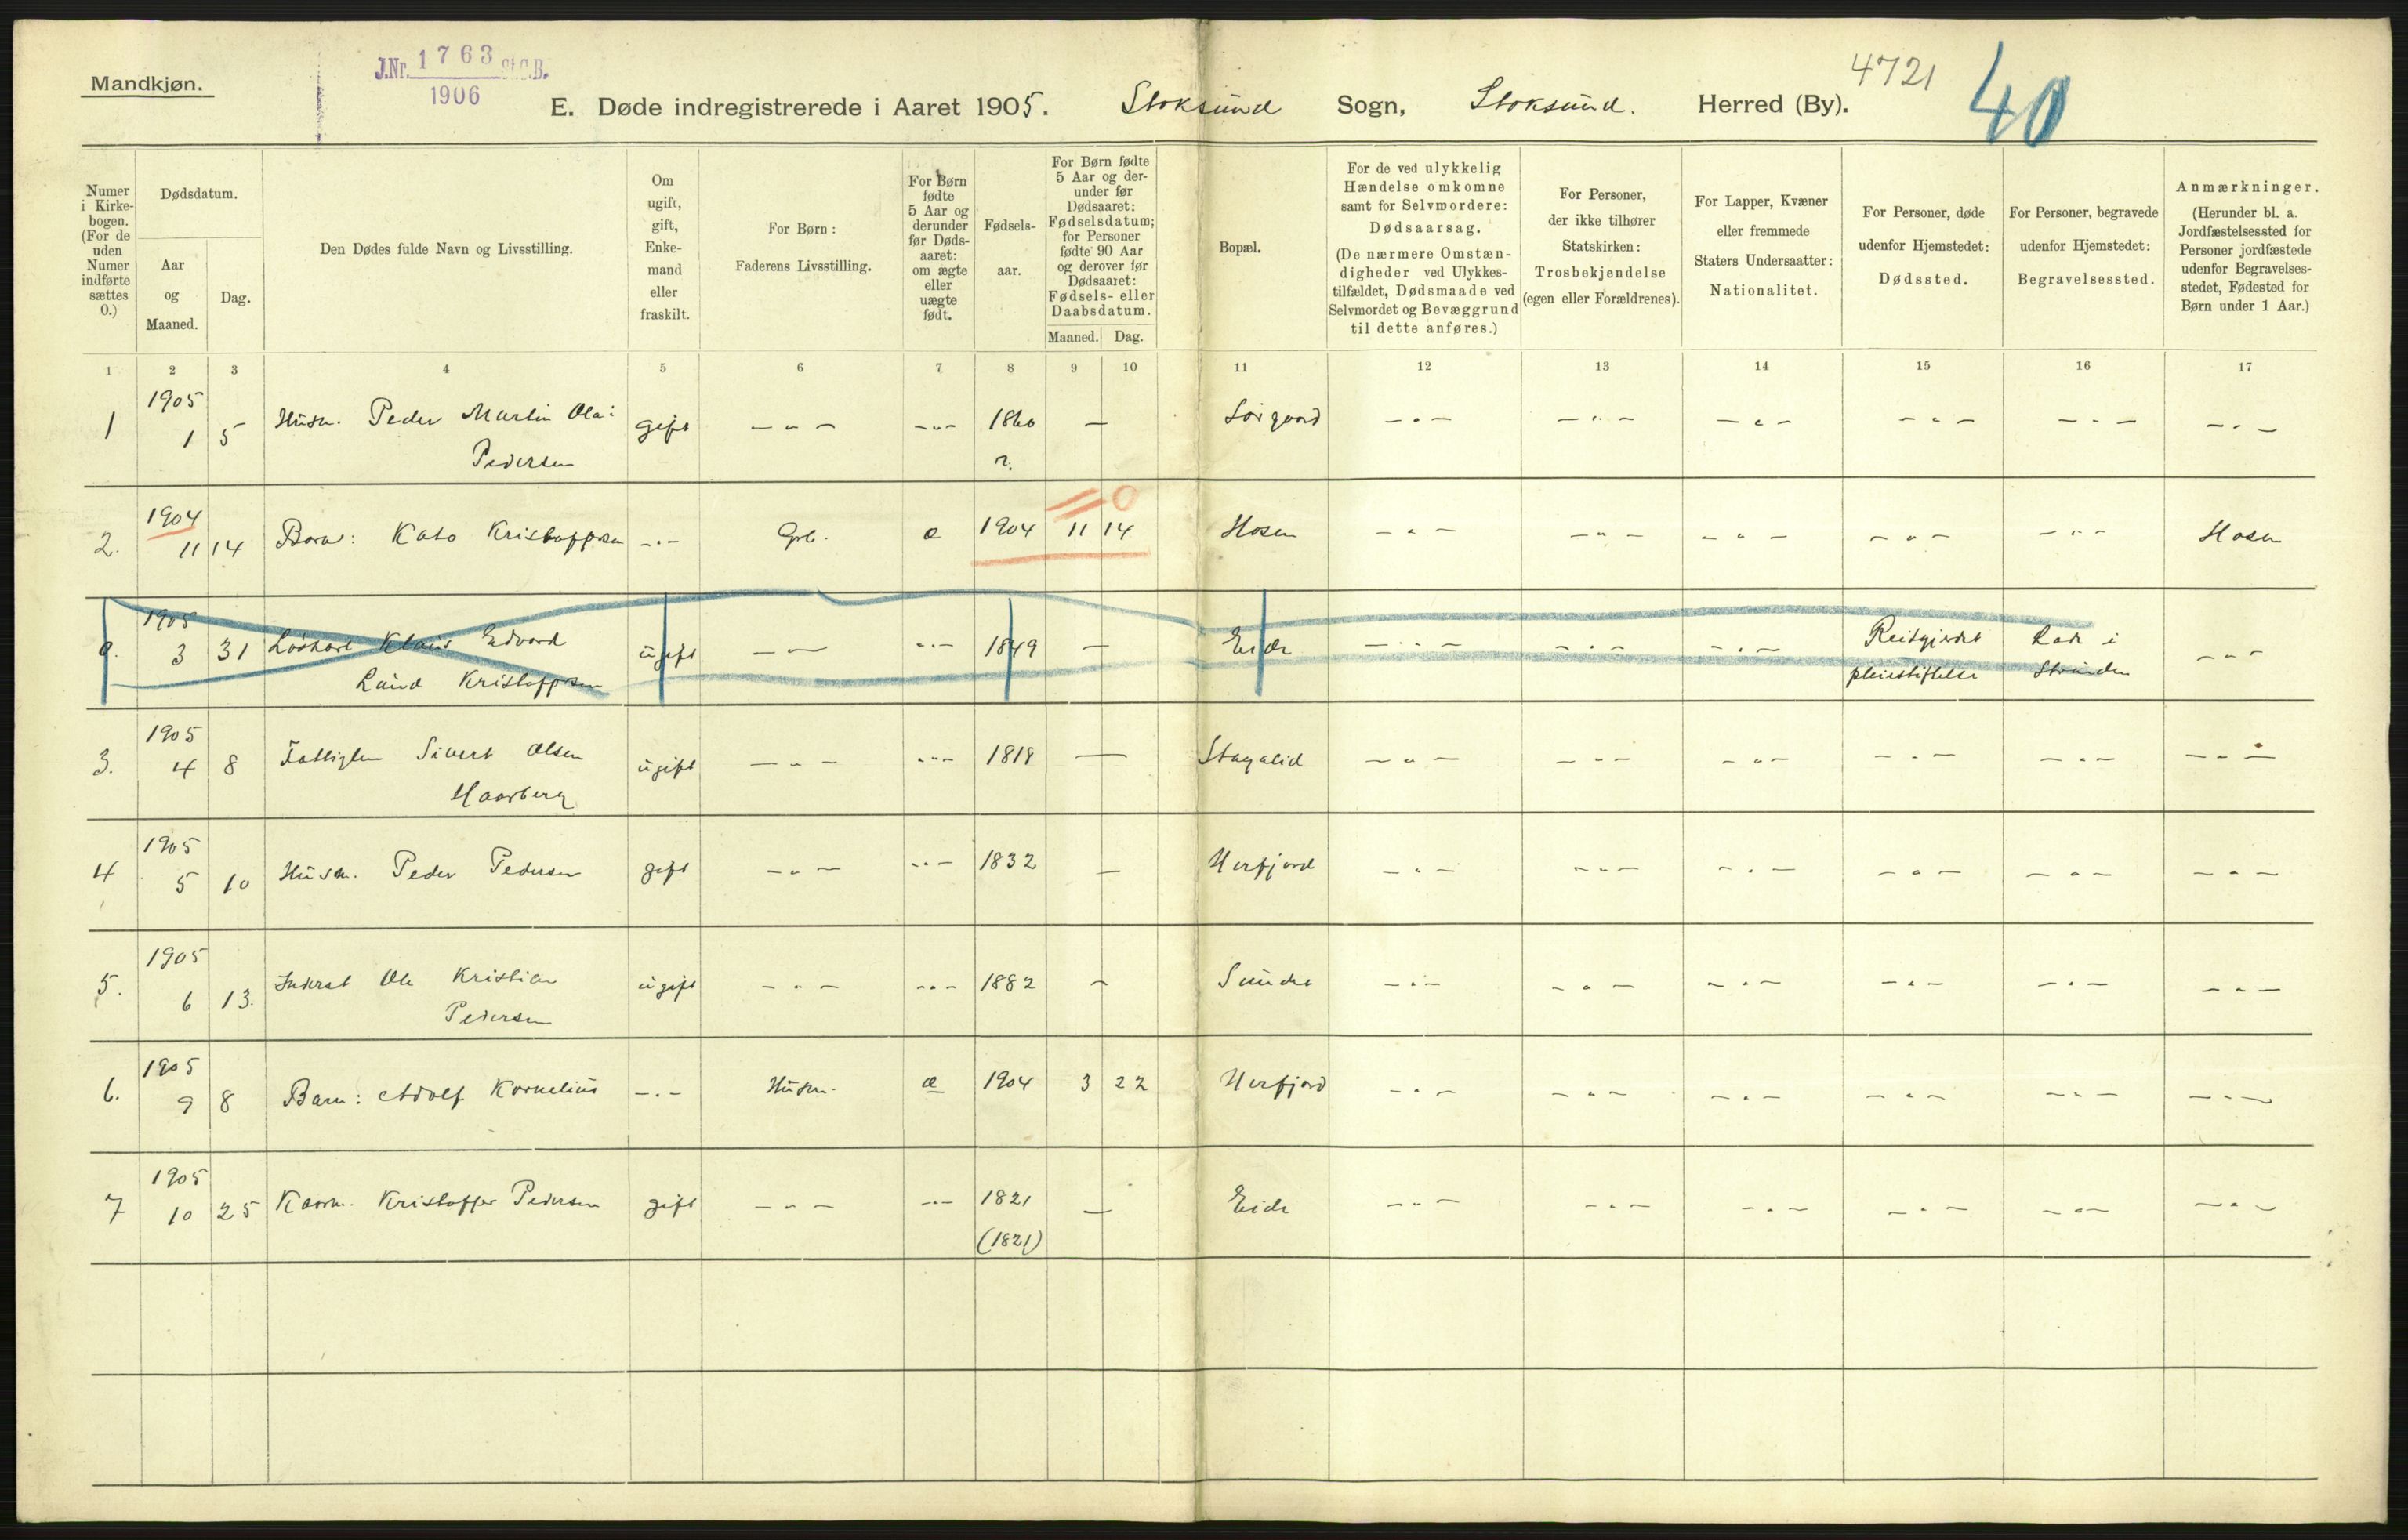 Mandkjøn.
J.Nr. 1763 St.C.B.
1906
E. Døde indregistrerede i Aaret 1905. Stoksund Sogn, Stoksund. Herred (By).
4721
40
Numer i Kirke-bogen. (For de uden Numer indførte sættes 0.)
Dødsdatum.
Aar og Maaned.
Dag.
Den Dødes fulde Navn og Livsstilling.
Om ugift, gift, Enke-mand eller fraskilt.
For Børn:
Faderens Livsstilling.
For Børn fødte 5 Aar og derunder før Døds-aaret: om ægte eller uægte født.
Fødsels-aar.
For Børn fødte 5 Aar og der-under før Dødsaaret: Fødselsdatum; for Personer fødte 90 Aar og derover før Dødsaaret: Fødsels- eller Daabsdatum.
Maaned. Dag.
Bopæl.
For de ved ulykkelig Hændelse omkomne samt for Selvmordere: Dødsaarsag.
(De nærmere Omstæn-digheder ved Ulykkes-tilfældet, Dødsmaade ved Selvmordet og Bevæggrund til dette anføres.)
For Personer, der ikke tilhører Statskirken: Trosbekjendelse (egen eller Forældrenes).
For Lapper, Kvæner eller fremmede Staters Undersaatter: Nationalitet.
For Personer, døde udenfor Hjemstedet: Dødssted.
For Personer, begravede udenfor Hjemstedet: Begravelsessted.
Anmærkninger.
(Herunder bl. a. Jordfæstelsessted for Personer jordfæstede udenfor Begravelses-stedet, Fødested for Børn under 1 Aar.)
1 2 3 4 5 6 7 8 9 10 11 12 13 14 15 16 17
1905
1 1 5 Husm. Peder Martin Ola: gift - " - - " - 1860 — - " - - " - - " - - " - - " - - " -
Pedersen ?.
1904 = 0
2. 11 14 Barn: Kato Kristoffersen - " - Grb. æ 1904 11 14 Hosen - " - - " - - " - - " - - " - Hosen
1905
0. 3 31 Løskarl Klaus Edvard ugift - " - - " - 1849 — Eide - " - - " - - " - Reitgjerdet Lade i - " -
Lund Kristoffersen pleiestiftelse Strinden
1905
3. 4 8 Fattiglem Sivert Olsen ugift - " - - " - 1818 — - " - - " - - " - - " - - " - - " -
Haarberg
1905
4 5 10 Husm. Peder Pedersen gift - " - - " - 1832 — Herfjord - " - - " - - " - - " - - " - - " -
1905
5. 6 13. Inderst Ole Kristian ugift - " - - " - 1882 — Sundet - " - - " - - " - - " - - " - - " -
Pedersen
1905
6. 9 8 Barn: Adolf Kornelius - " - Husm. æ 1904 3 22 Herfjord - " - - " - - " - - " - - " - - " -
1905
7 10 25 Kaarm. Kristoffer Pedersen gift - " - - " - 1821 — Eide - " - - " - - " - - " - - " - - " -
(1821)